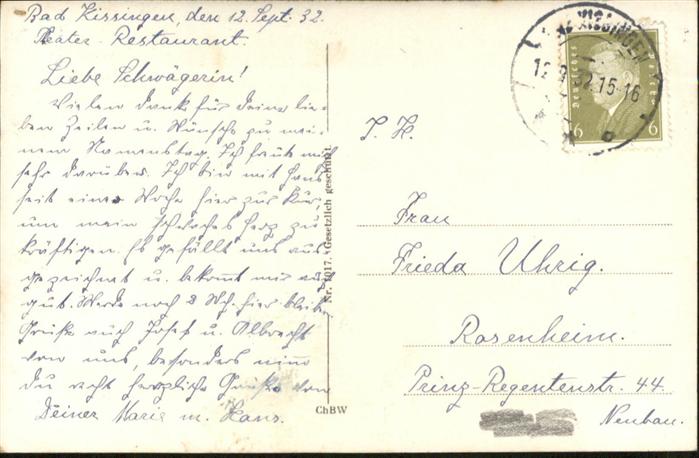 Bad Kissingen, den 12. Sept. 32.
Theater-Restaurant.
Liebe Schwägerin!
Vielen Dank für Deine lie-
ben Zeilen u. Wünsche zu mei-
nem Namenstag. Ich freute mich
sehr darüber. Ich bin mit Hans
seit einer Woche hier zur Kur,
um mein schwaches Herz zu
kräftigen. Es gefällt uns aus-
gezeichnet u. bekommt mir auch
gut. Werde noch 2 Wch. hier bleiben
Grüße auch Josef u. Albrecht
von uns, besonders nimm
Du recht herzliche Grüße von
Deiner Marie m. Hans.
Nr. 1017. Gesetzlich geschützt.
ChBW
KISSINGEN
12.9.32.15-16
6
6
Frau
Frieda Uhrig.
Rosenheim.
Prinz-Regentenstr. 44.
Neubau.